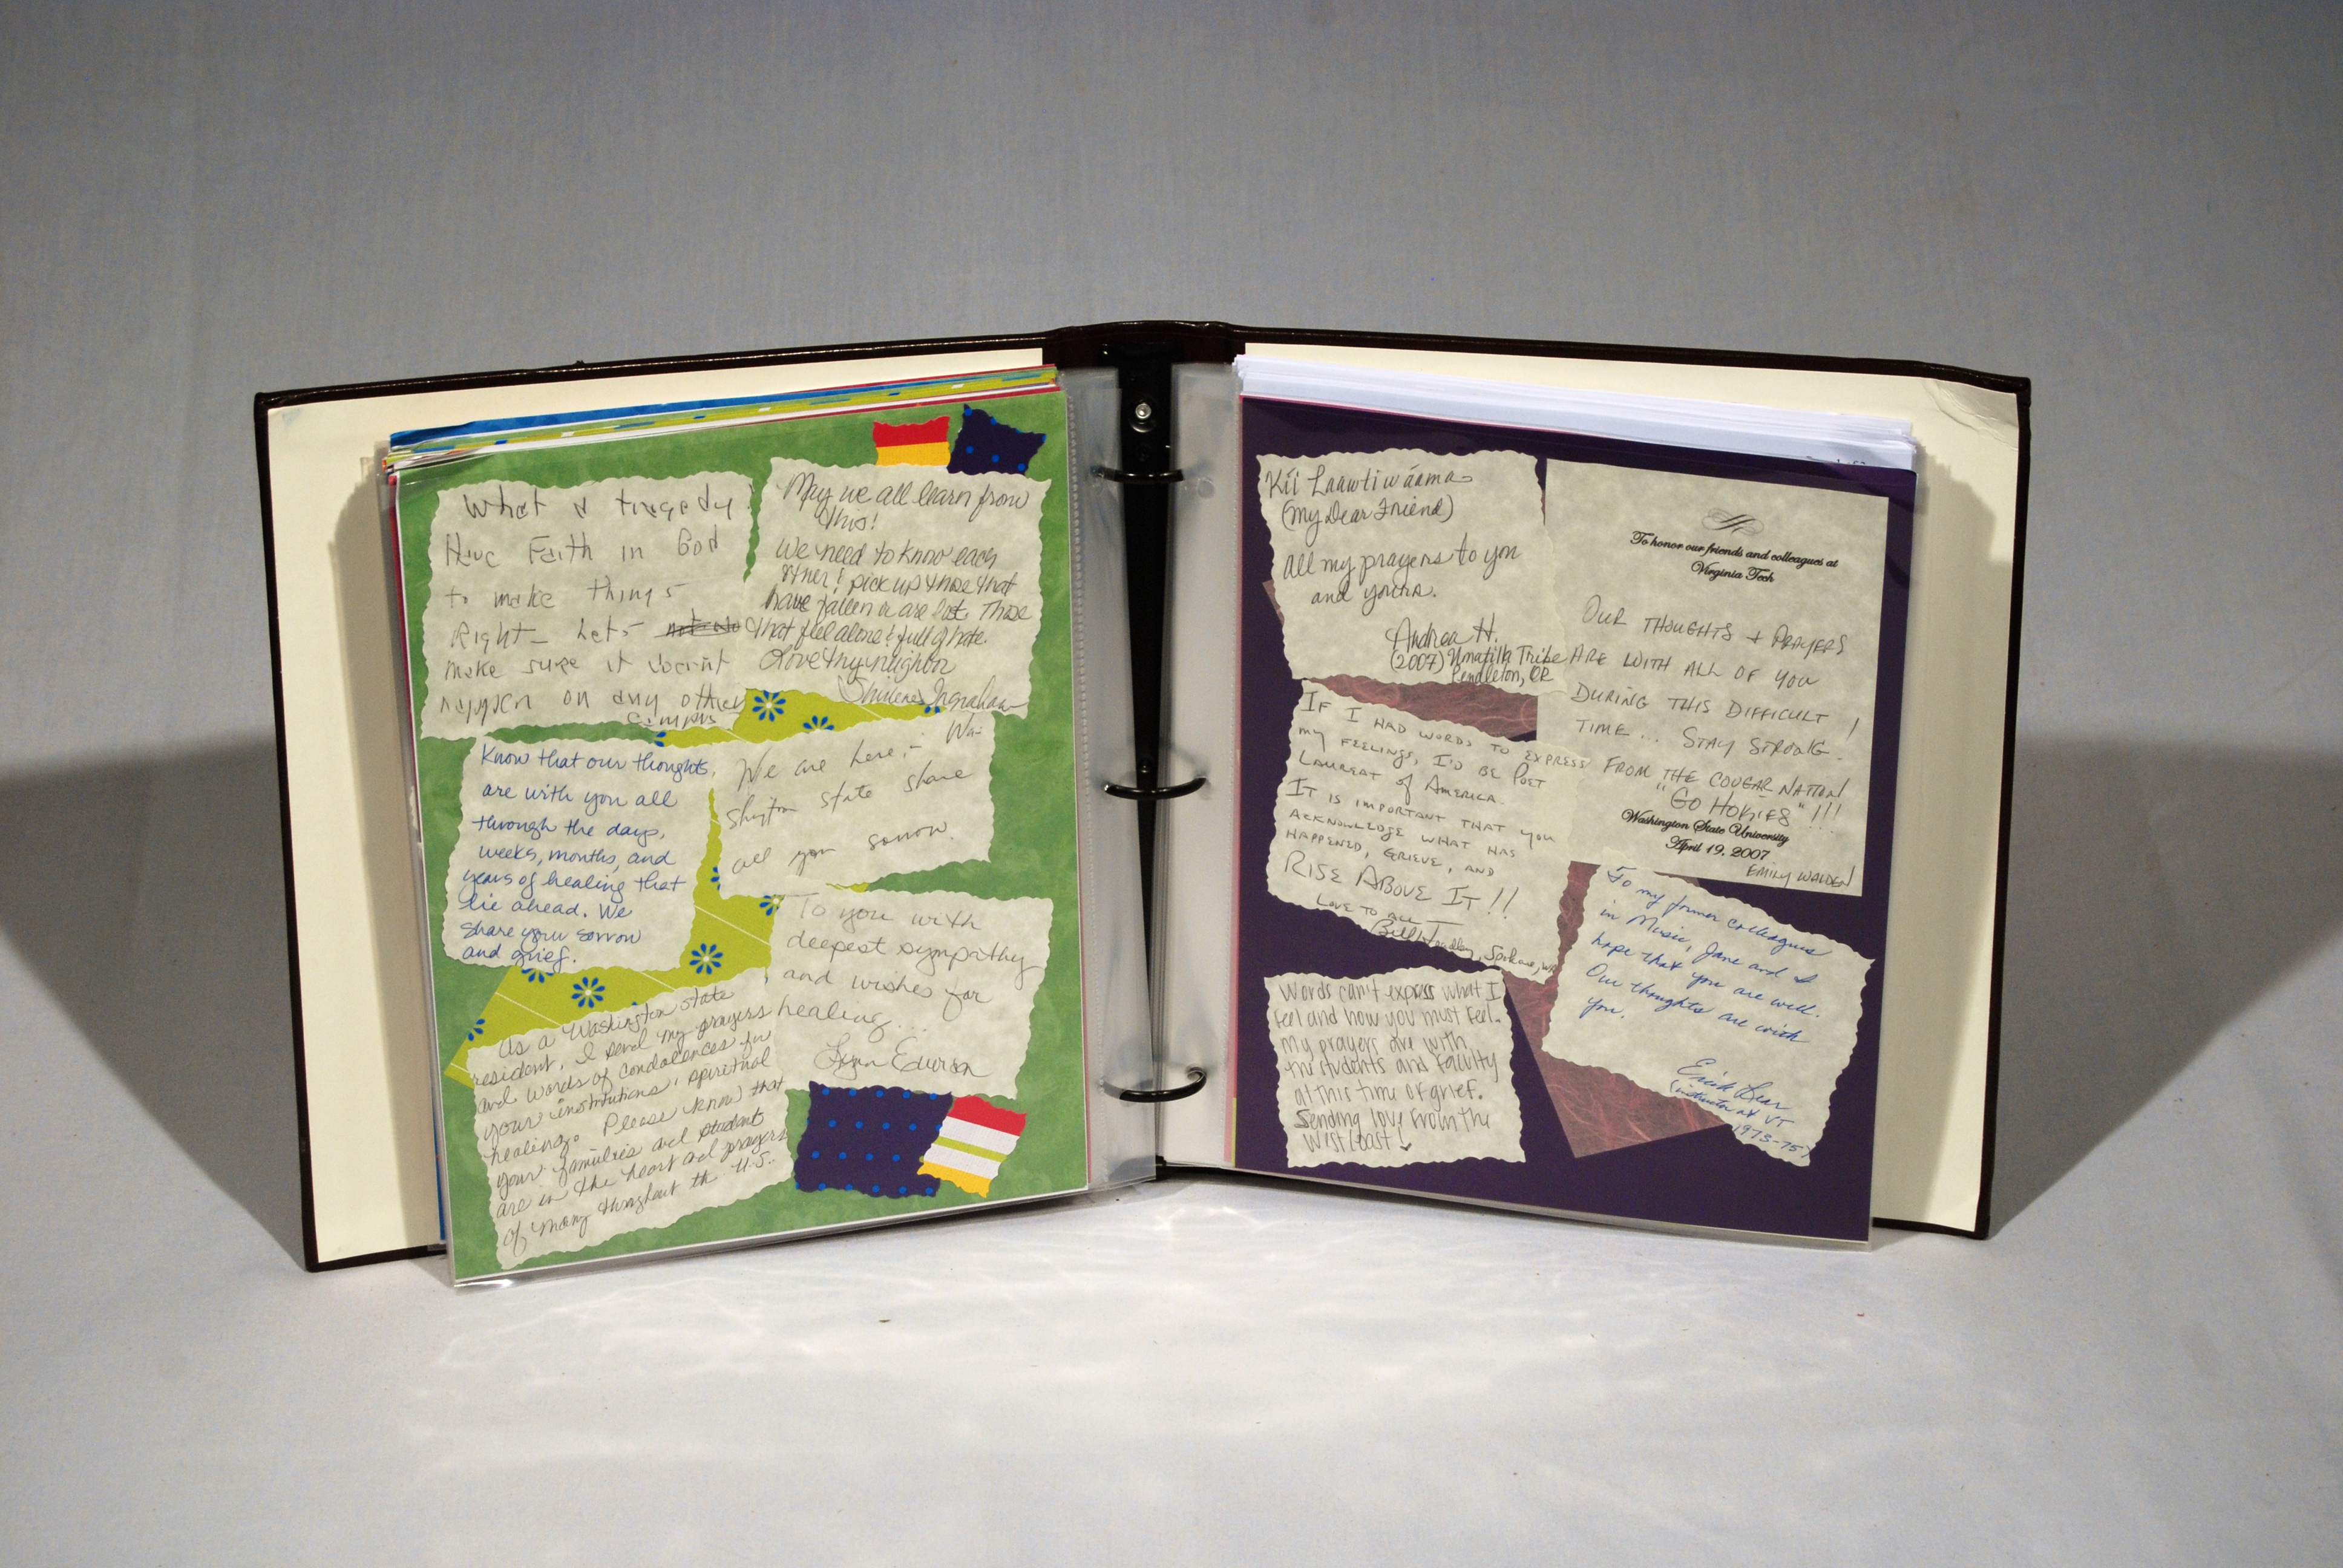 What a tragedy!
Have Faith in God
to make things
Right - Lets
make sure it doesn't
happen on any other
campus
May we all learn from
this!
We need to know each
other! pick up those that
have fallen or are lost. Those
that feel alone & full of hate.
Love thy neighbor
Ingraham
Know that our thoughts
are with you all
through the days,
weeks, months, and
years of healing that
lie ahead. We
share your sorrow
and grief.
We are here in Wa-
shington state share
all your sorrow.
To you with
deepest sympathy
and wishes for
healing...
Lynn
As a Washington state
resident, I send my prayers
and words of condolences for
your institutions' spiritual
healing. Please know that
your families and student
are in the heart and prayers
of many throughout the U.S.
Kíi Laawtiwáama
(My Dear Friend)
All my prayers to you
and yours.
Andrea H.
(2007) Umatilla Tribe
Pendleton, OR
To honor our friends and colleagues at
Virginia Tech
OUR THOUGHTS + PRAYERS
ARE WITH ALL OF YOU
DURING THIS DIFFICULT
TIME... STAY STRONG!
FROM THE COUGAR NATION!
"GO HOKIES"!!!
Washington State University
April 19, 2007
EMILY WALDEN
IF I HAD WORDS TO EXPRESS
MY FEELINGS, I'D BE POET
LAUREAT of AMERICA.
IT IS IMPORTANT THAT YOU
ACKNOWLEDGE WHAT HAS
HAPPENED, GRIEVE, AND
RISE ABOVE IT!!
LOVE TO ALL
Bill Headley, Spokane, WA
Words can't express what I
feel and how you must feel.
My prayers are with
the students and faculty
at this time of grief.
Sending love from the
West Coast!
To my former colleagues
in Music, Jane and I
hope that you are well.
Our thoughts are with
you.
Erich Lear
(instructor at VT
1973-75)